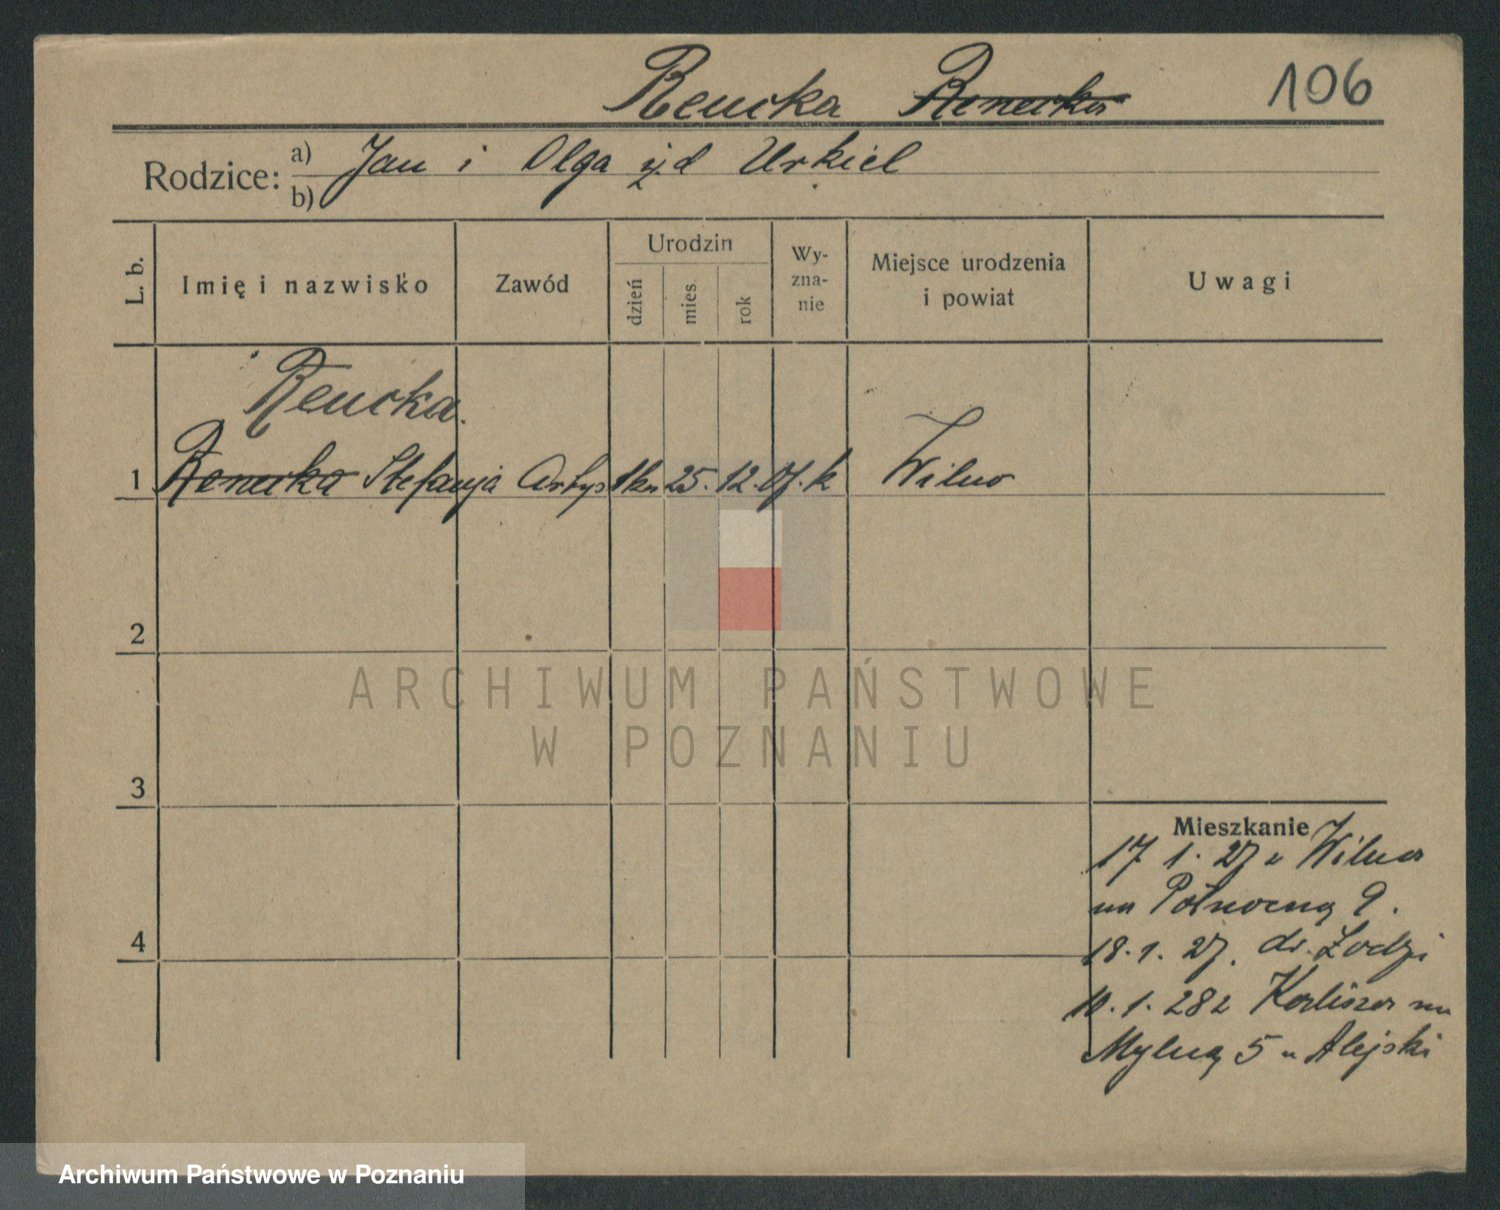 Rencka Renecka 106
Rodzice: a) Jan i Olga żyd Urkiel
b)
L. b. Imię i nazwisko Zawód Urodzin dzień mies rok Wy-zna-nie Miejsce urodzenia i powiat Uwagi
Rencka.
1 Renecka Stefanja Artystka 25. 12. 07. k Wilno
2
ARCHIWUM PAŃSTWOWE
W POZNANIU
3
Mieszkanie
17 1. 27 z Wilna
na Północną 9.
4
18. 1. 27. do Łodzi
10. 1. 28 z Kalisza na
Mylną 5 u Alejski
Archiwum Państwowe w Poznaniu